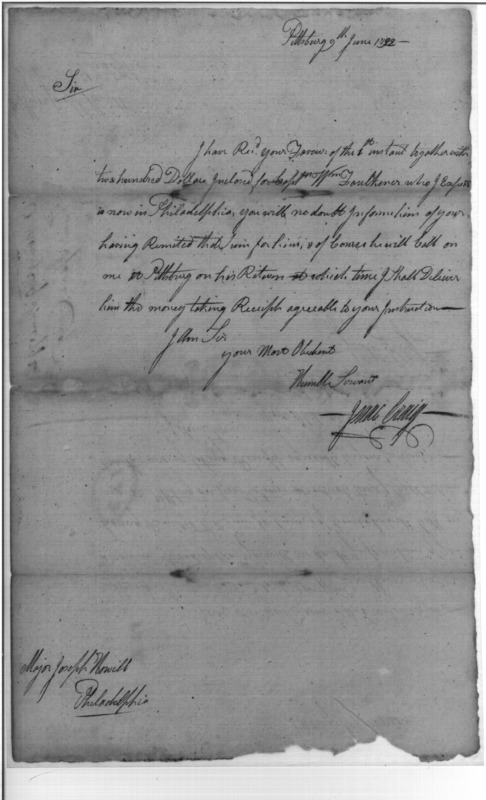 Pittsburg 9th June 1792
Sir
I have Recd. your Favour of the 1st instant together with
two hundred Dollars Inclosed for Capt Wm Faulkener who I
is now in Philadelphia, you will no doubt Inform him of your
having Remited that Sum for him, & of Course he will Call on
me at Pittsburg on his Return at which time I Shall Deliver
him the money taking Receipts agreable to your Instruction
I Am Sir
your Most Obedient
Humble Servant
Isaac Craig
Major Joseph Howell
Philadelphia